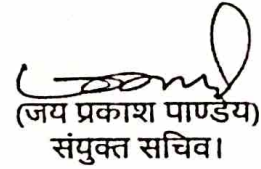 (जय प्रकाश पाण्डेय)
संयुक्त सचिव।